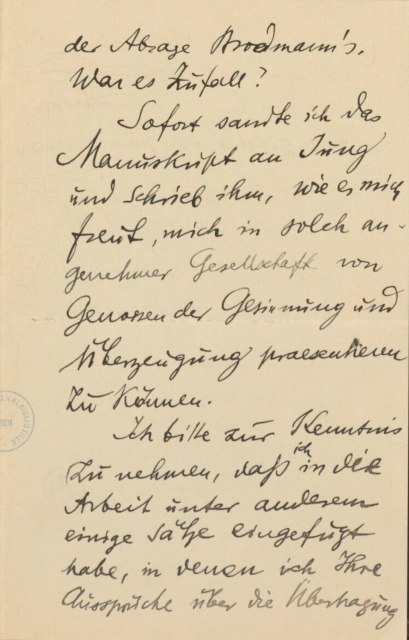 der Absage Brodmann's.
War es Zufall?
Sofort sandte ich das
Manuskript an Jung
und schrieb ihm, wie es mich
freut, mich in solch an-
genehmer Gesellschaft von
Genossen der Gesinnung und
Überzeugung praesentieren
zu können.
Ich bitte zur Kenntnis
zu nehmen, daß ich in die
Arbeit unter anderem
einige Sätze eingefügt
habe, in denen ich Ihre
Aussprüche über die Übertragung